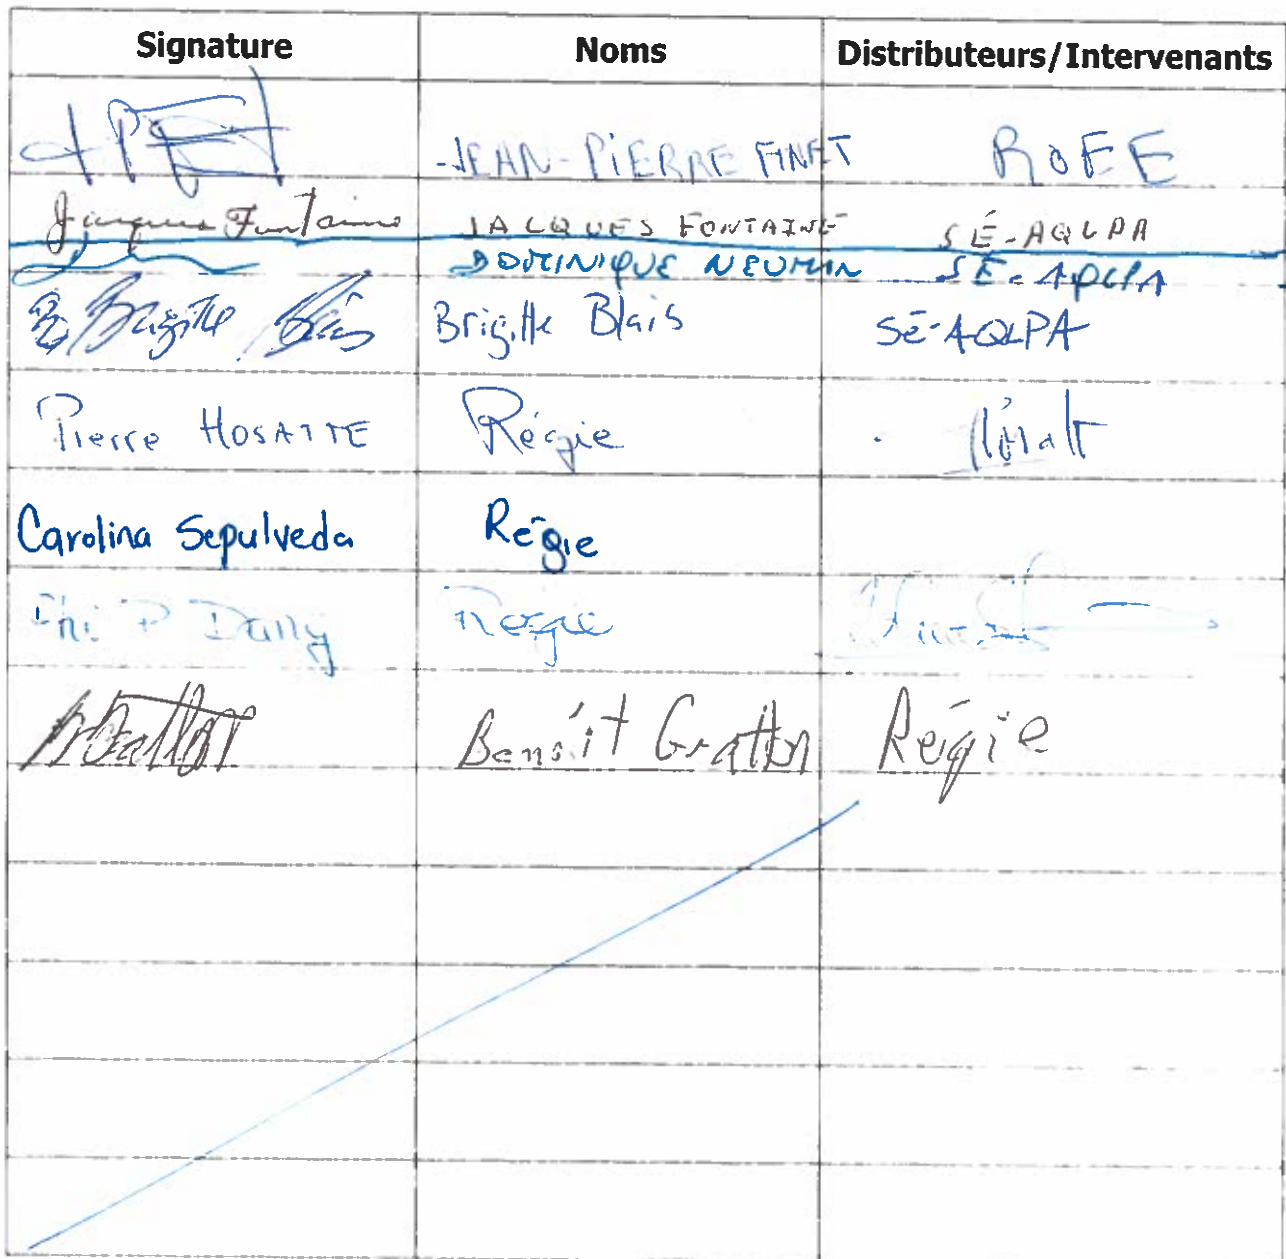 Signature Noms Distributeurs/Intervenants
JEAN-PIERRE FINET ROEE
Jacques Fontaine JACQUES FONTAINE SÉ-AQLPA
DOMINIQUE NEUMAN SÉ-AQLPA
Brigitte Blais Brigitte Blais SÉ-AQLPA
Pierre HOSATTE Régie
Carolina Sepulveda Régie
Dally Régie
Benoît Gratton Régie